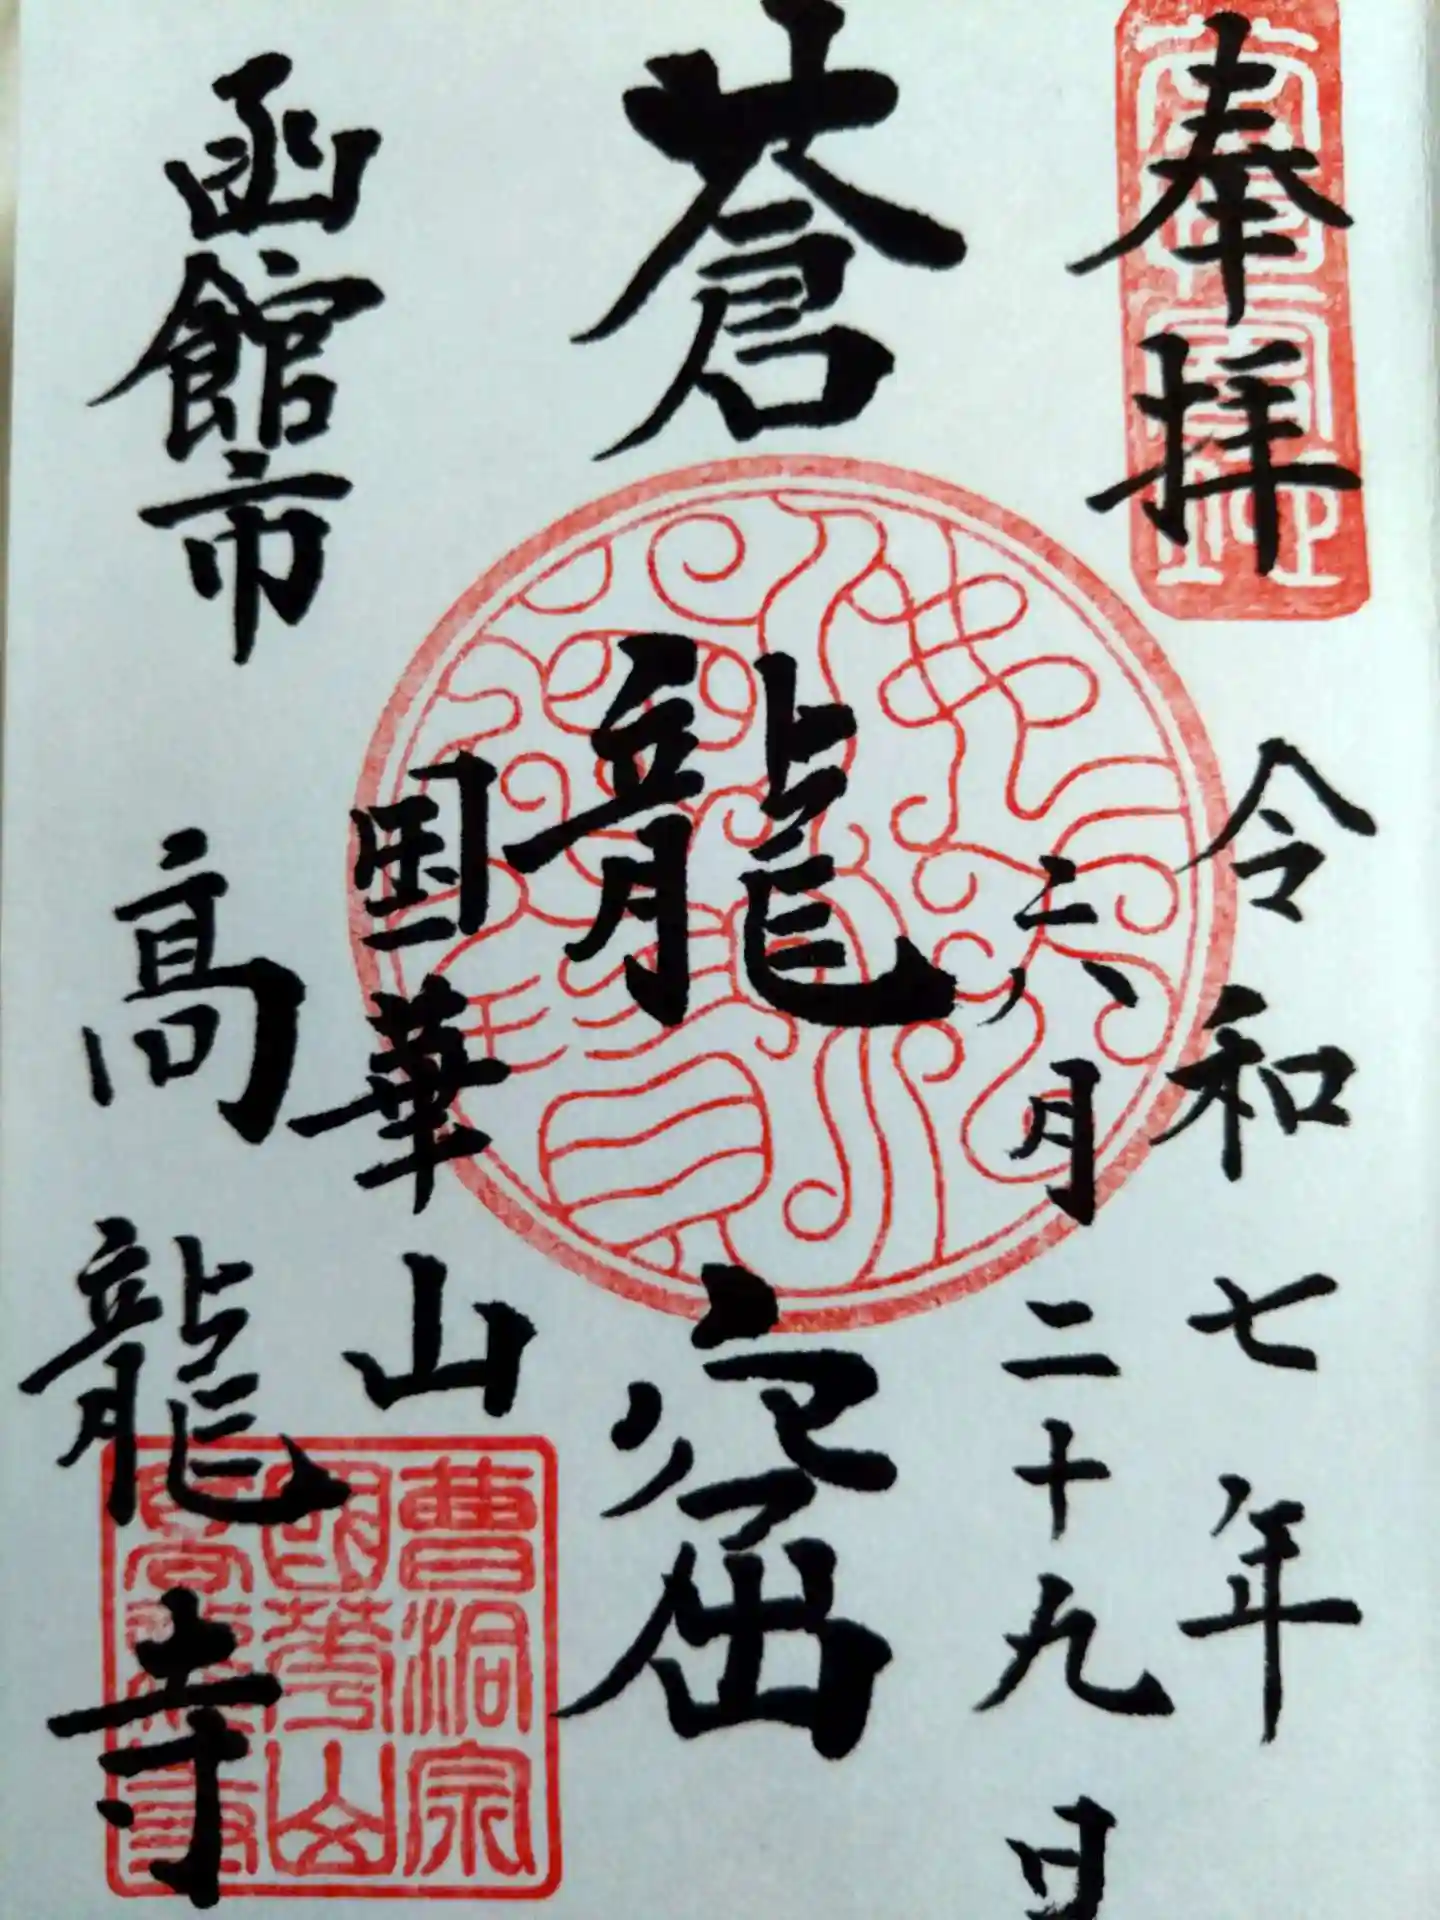 奉拝
令和七年
六月二十九日
蒼龍窟
国華山
函館市 高龍寺
曹洞宗
國華山
高龍寺